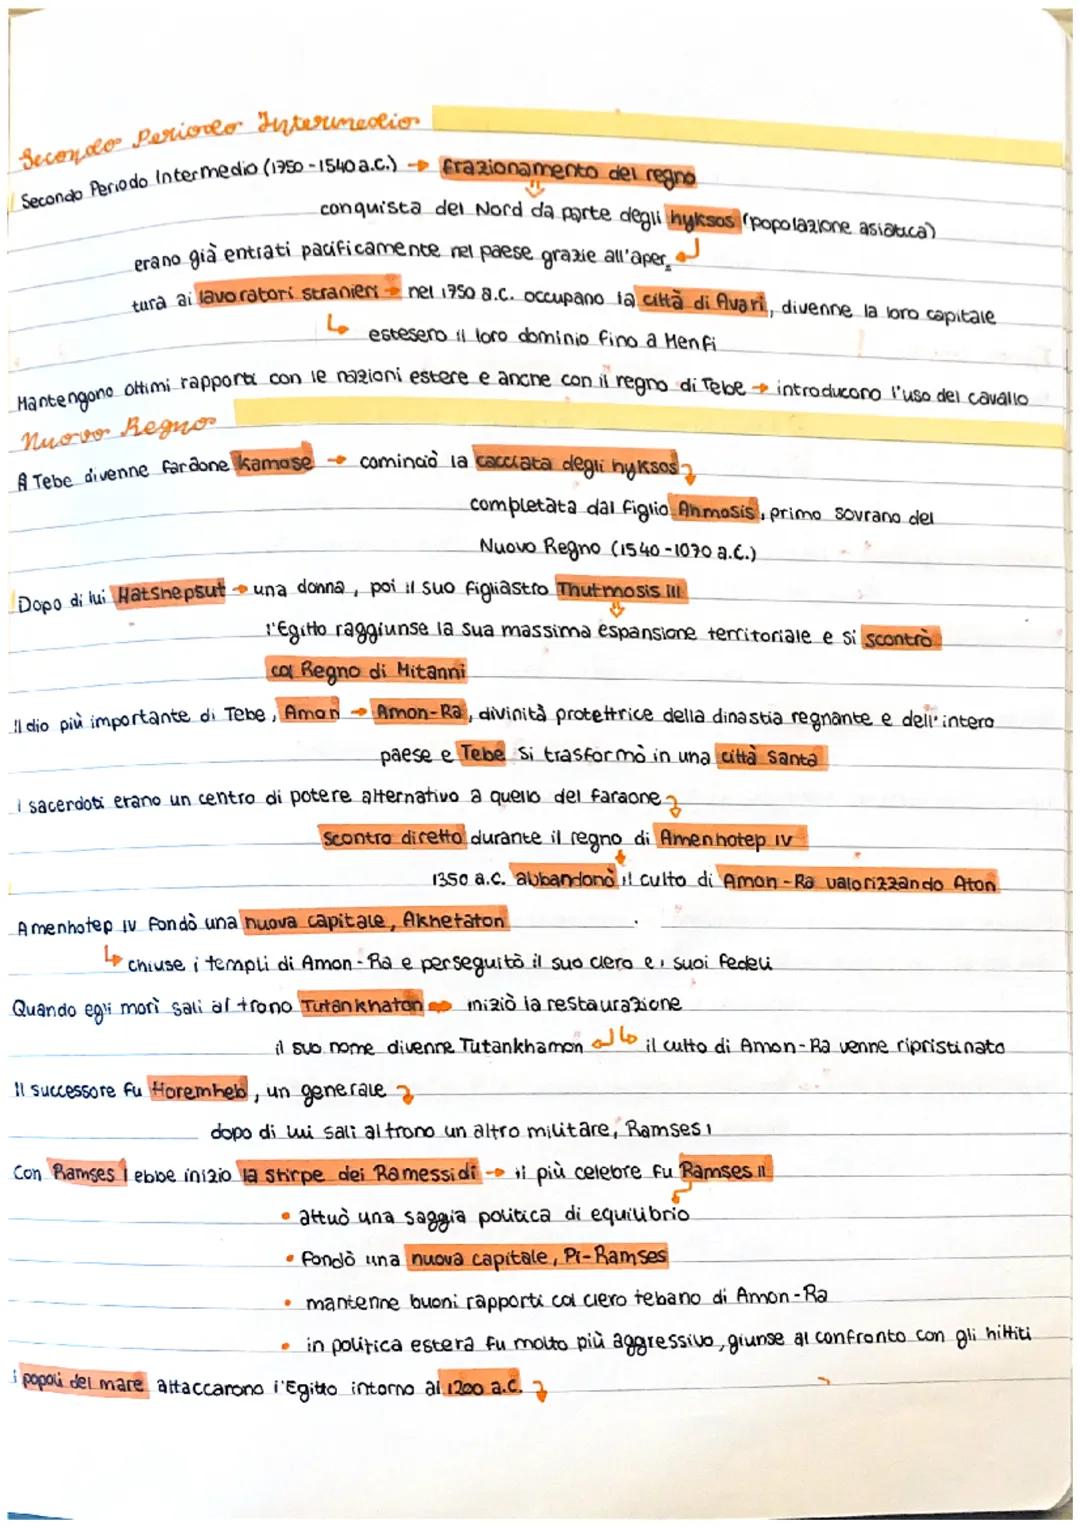 Secondo Periodo Intermedio
Secondo Periodo Intermedio (1750-1540 a.C.) → frazionamento del regno
conquista del Nord da parte degli hyksos (popolazione asiatica)
erano già entrati pacificamente nel paese grazie all'aper
tura ai lavoratori stranieri → nel 1750 a.C. occupano la città di Avari, divenne la loro capitale
estesero il loro dominio fino a Menfi
Mantengono ottimi rapporti con le nazioni estere e anche con il regno di Tebe → introducono l'uso del cavallo
Nuovo Regno
A Tebe divenne faraone Kamose → cominciò la cacciata degli hyksos
completata dal figlio Ahmosis, primo sovrano del
Nuovo Regno (1540-1070 a.C.)
Dopo di lui Hatshepsut → una donna, poi il suo figliastro Thutmosis III
l'Egitto raggiunse la sua massima espansione territoriale e si scontrò
col Regno di Mitanni
Il dio più importante di Tebe, Amon → Amon-Ra, divinità protettrice della dinastia regnante e dell'intero
paese e Tebe si trasformò in una città santa
I sacerdoti erano un centro di potere alternativo a quello del faraone
scontro diretto durante il regno di Amenhotep IV
1350 a.C. abbandonò il culto di Amon-Ra valorizzando Aton
Amenhotep IV fondò una nuova capitale, Akhetaton
chiuse i templi di Amon-Ra e perseguitò il suo clero e i suoi fedeli
Quando egli morì salì al trono Tutankhaton → iniziò la restaurazione
il suo nome divenne Tutankhamon il culto di Amon-Ra venne ripristinato
Il successore fu Horemheb, un generale
dopo di lui salì al trono un altro militare, Ramses I
Con Ramses I ebbe inizio la stirpe dei Ramessidi → il più celebre fu Ramses II
• attuò una saggia politica di equilibrio
• fondò una nuova capitale, Pi-Ramses
• mantenne buoni rapporti col clero tebano di Amon-Ra
• in politica estera fu molto più aggressivo, giunse al confronto con gli hittiti
i popoli del mare attaccarono l'Egitto intorno al 1200 a.C.